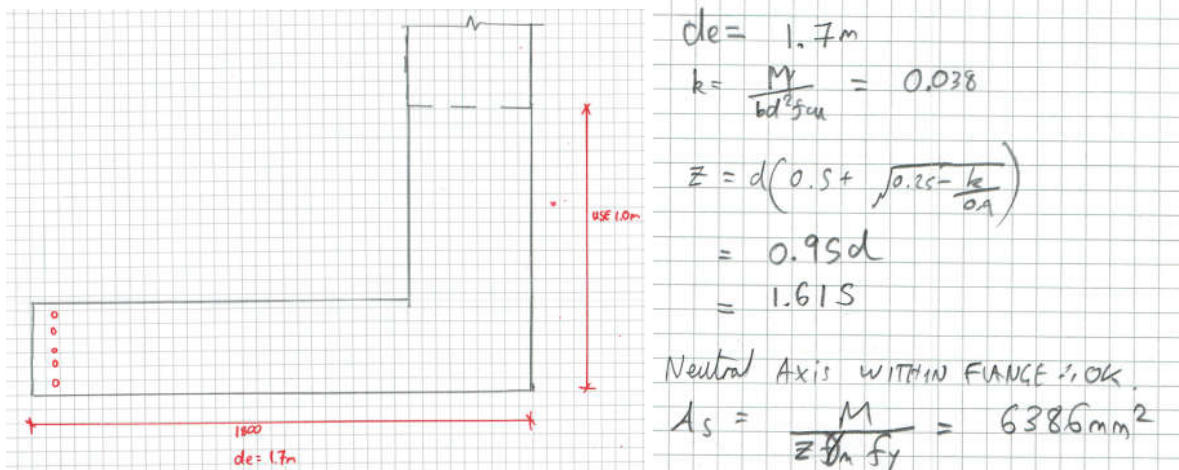 USE 1.0m
1800
de = 1.7m
de = 1.7m
k = M / bd²fcu = 0.038
z = d(0.5 + √0.25 - k/0.9)
= 0.95d
= 1.615
Neutral Axis WITHIN FLANGE ∴ OK.
As = M / z γm fy = 6386mm²